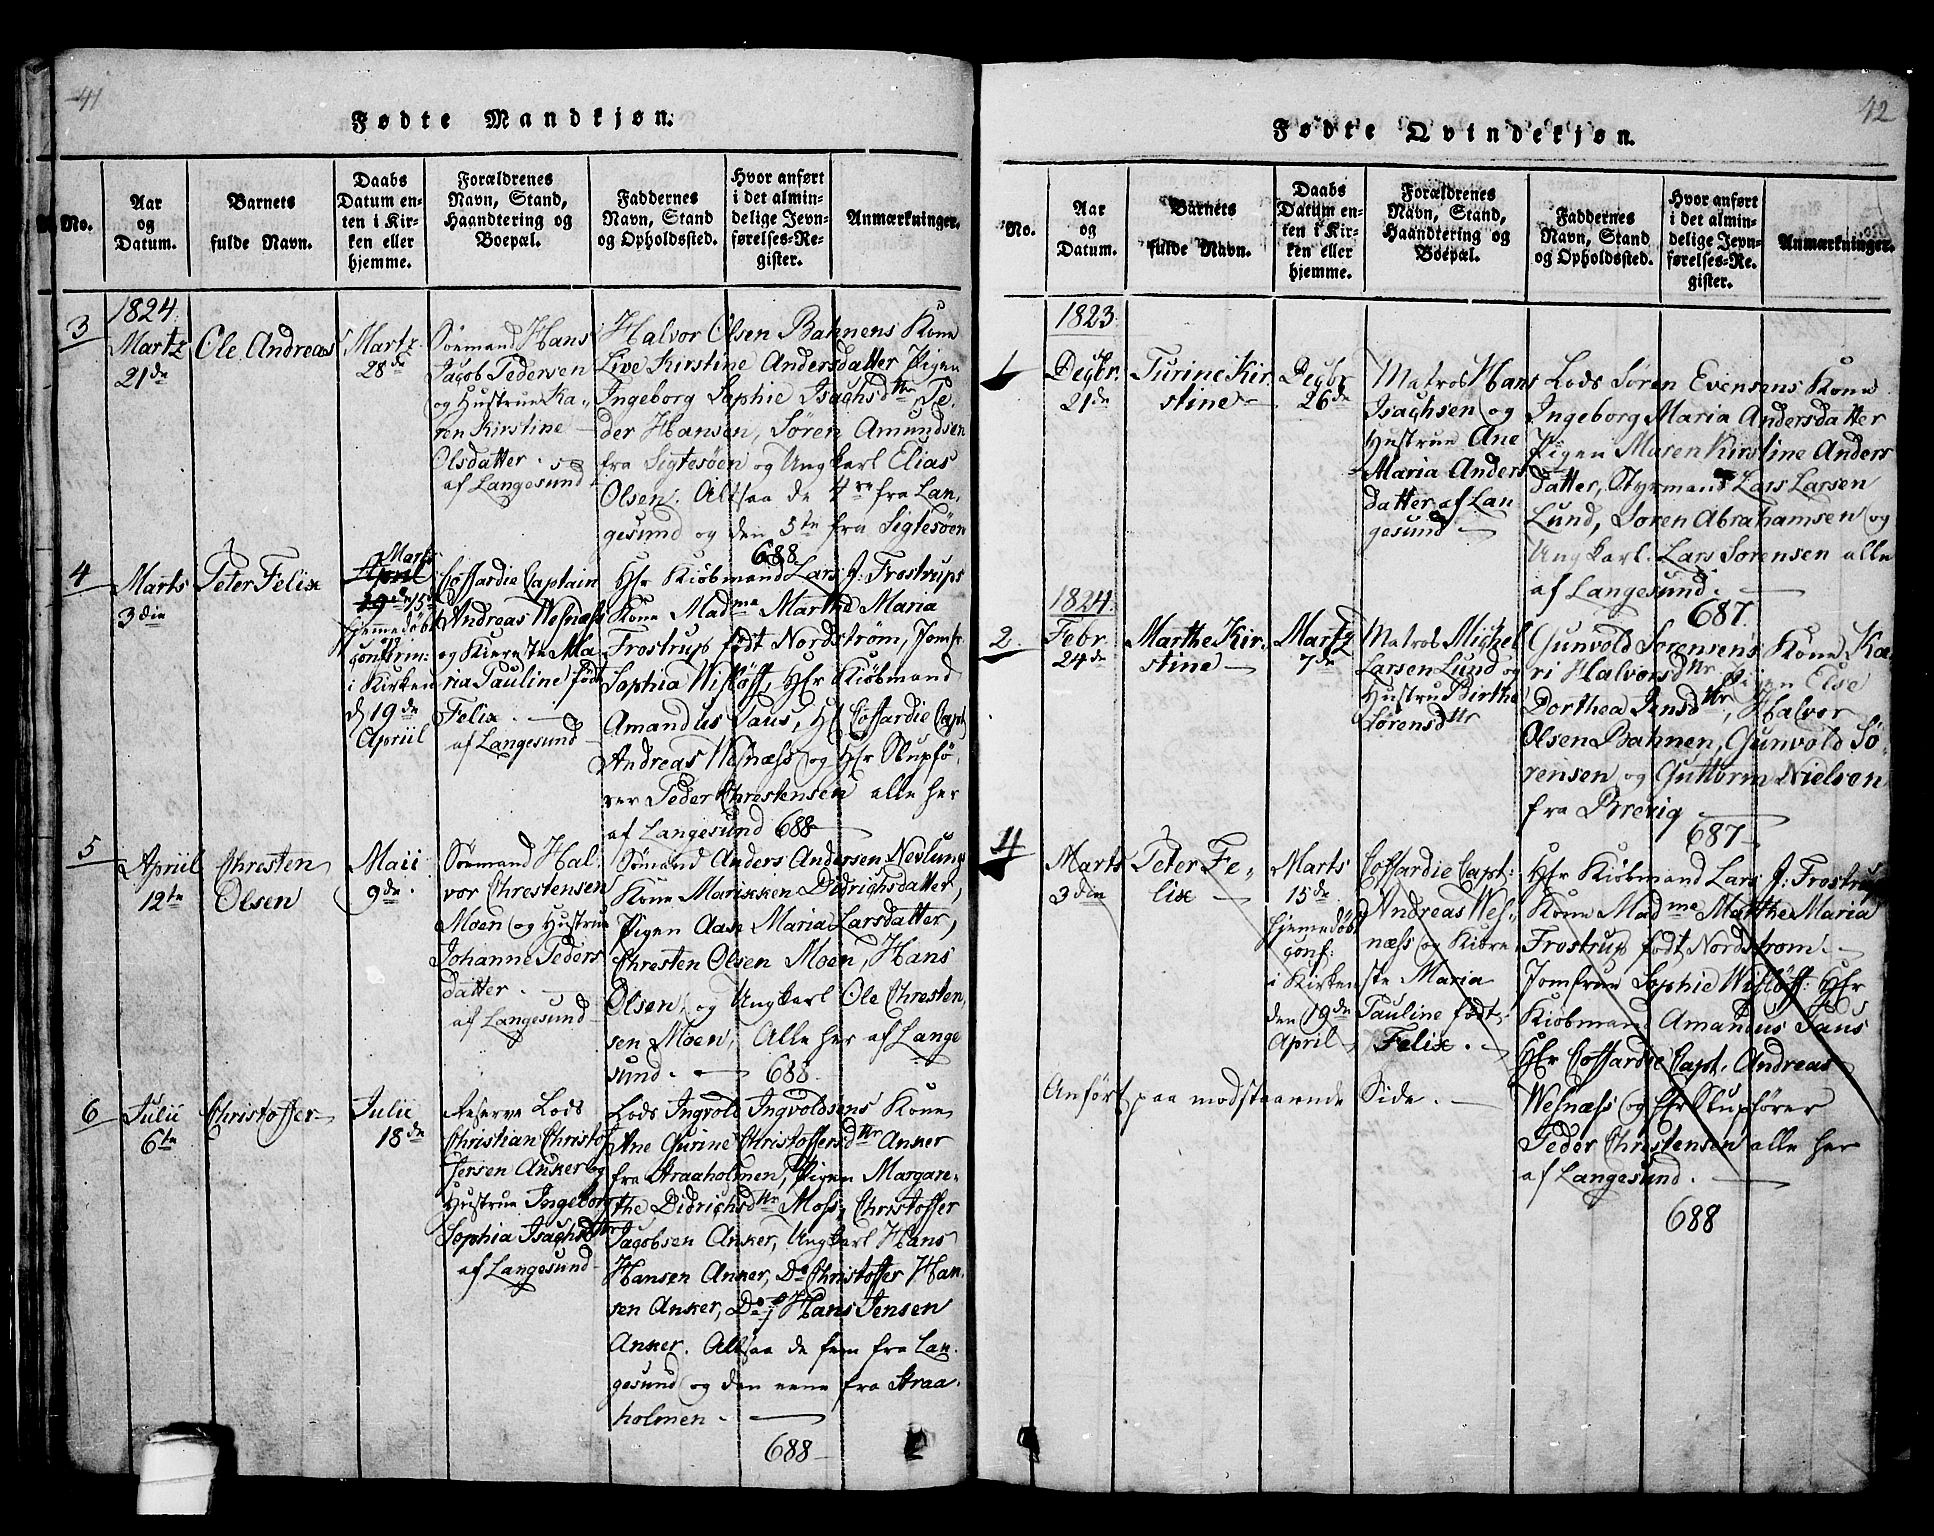 41
Fødte Mandkjøn.
No.
Aar
og
Datum.
Barnets
fulde Navn.
Daabs
Datum en-
ten i Kir-
ken eller
hjemme.
Forældrenes
Navn, Stand,
Haandtering og
Boepæl.
Faddernes
Navn, Stand
og Opholdssted.
Hvor anført
i det almin-
delige Jevn-
førelses-Re-
gister.
Anmærkninger.
3
1824.
Martz
21de
Ole Andreas
Martz
28de
Sømand Hans
Jacob Pedersen
og Hustrue Ka-
ren Kirstine
Olsdatter.
af Langesund
Halvor Olsen Bahnens Kone
Live Kirstine Andersdatter Pigen
Ingeborg Sophie Isachsdttr Pe-
der Hansen, Søren Amundsen
fra Sigtesøen og Ungkarl Elias
Olsen. Altsaa de 4re fra Lan-
gesund og den 5te fra Sigtesøen
688
4
Marts
3die
Peter Felix
Marts
April
19de 15de
hjemmedøbt
og
confirm:
i Kirken
d 19de
Apriil
Coffardie Captain
Andreas Wesnæss
og Kiereste Ma-
ria Pauline født
Felix.
af Langesund
Hr Kiøbmand Lars J. Frostrups
Kone Madme Marthe Maria
Frostrup født Nordstrøm, Jomfr
Sophia Wisløff, Hr Kiøbmand
Amandus Paus, Hr Coffardie Capt
Andreas Wesnæss og Hr Skupfø-
rer Peder Christensen alle her
af Langesund 688
5
Apriil
12te
Christen
Olsen
Maii
9de.
Sømand Hal-
vor Christensen
Moen og Hustrue
Johanne Peders
datter.
af Langesund
Sømand Anders Andersen Nevlung
Kone Marikken Didrichsdatter,
Pigen Aase Maria Larsdatter,
Christen Olsen Moen, Hans
Olsen, og Ungkarl Ole Christen-
sen Moen, Alle her af Lange
sund.
688
6
Julii
6te
Christoffer
Julii
18de
Reserve Lods
Christian Christof
fersen Anker og
Hustrue Ingeborg
Sophia Isachsdttr
af Langesund
Lods Ingvold Ingvoldsens Kone
Ane Gurine Christoffersdttr Anker
fra Straaholmen, Pigen Margre-
the Didrichsdttr Moss, Christoffer
Jacobsen Anker, Ungkarl Hans
Hansen Anker, Do Christoffer Han-
sen Anker, Do Hans Jensen
Anker. Altsaa de fem fra Lan-
gesund og den eene fra Straa-
holmen.
688
42
Fødte Qvindekjøn.
No.
Aar
og
Datum.
Barnets
fulde Navn.
Daabs
Datum en-
ten i Kir-
ken eller
hjemme.
Forældrenes
Navn, Stand,
Haandtering og
Boepæl.
Faddernes
Navn, Stand
og Opholdssted.
Hvor anført
i det almin-
delige Jevn-
førelses-Re-
gister.
Anmærkninger.
1823.
1
Decbr.
21de
Turine Kir-
stine
Decbr
26de
Matros Hans
Isachsen og
Hustrue Ane
Maria Anders
datter af Lan
gesund
Lods Søren Evensens Kone
Ingeborg Maria Andersdatter
Pigen Maren Kirstine Anders
datter, Styrmand Lars Larsen
Lund, Søren Abrahamsen og
Ungkarl Lars Sørensen alle
af Langesund.
687.
1824.
2
Febr.
24de
Marthe Kir-
stine
Martz
7de
Matros Michel
Larsen Lund og
Hustru Birthe
Sørensdttr
Gunvold Sørensens Kone Ka-
ri Halvorsdttr Pigen Else
Dorthea Jensdttr, Halvor
Olsen Bahnen, Gunvold Sø-
rensen og Guttorm Nielsen
fra Brevig
687
4
Marts
3die
Peter Fe-
lix
Marts
15de
hjemmedøbt
conf:
i Kirken
den 19de
April
Coffardie Capt:
Andreas Wes-
næss og Kiere-
ste Maria
Pauline født
Felix.
Hr Kiøbmand Lars J: Frostrup
Kone Madme Marthe Maria
Frostrup født Nordstrøm.
Jomfrue Sophie Wisløff: Hr
Kiøbmand Amandus Paus
Hr Coffardie Capt. Andreas
Wesnæss og Hr Skupfører
Peder Christensen alle her
af Langesund.
688
Anført paa modstaaende Side.